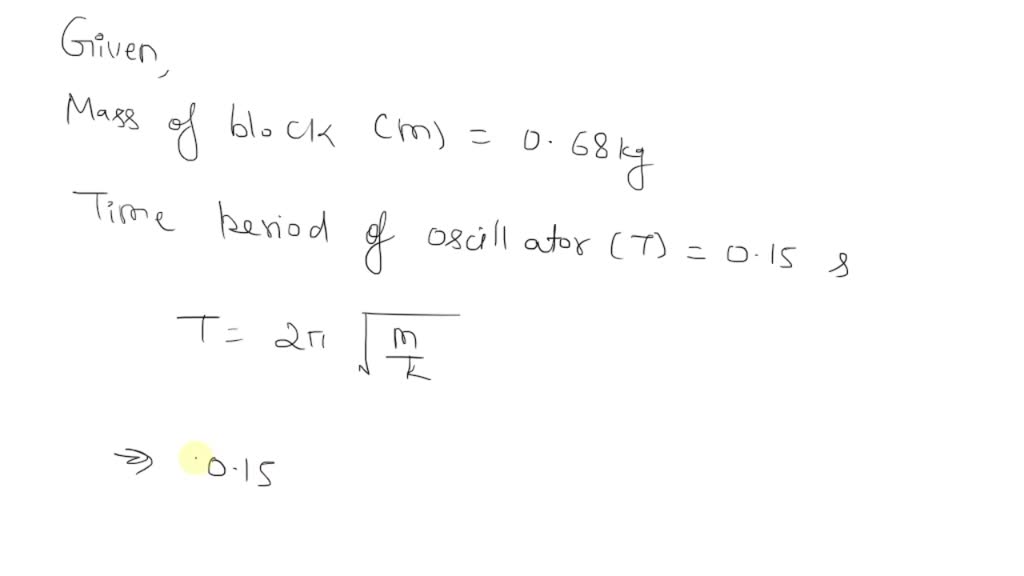 Given,
Mass of block (m) = 0.68 kg
Time period of oscillator (T) = 0.15 s
T = 2π √(m/k)
⇒ 0.15